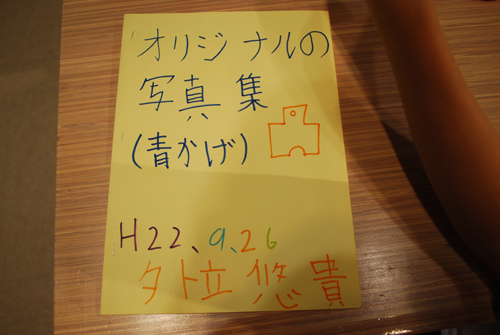 オリジナルの
写真集
(青かげ)
H22、9、26
夕ト立悠貴